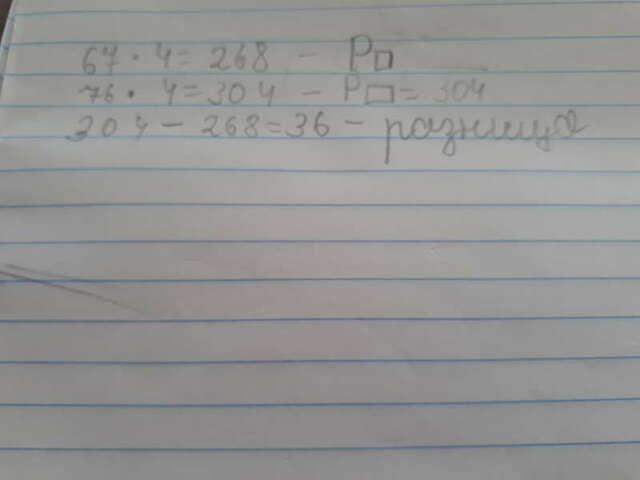 67 · 4 = 268 - P□
76 · 4 = 304 - P▭ = 304
304 - 268 = 36 - разница